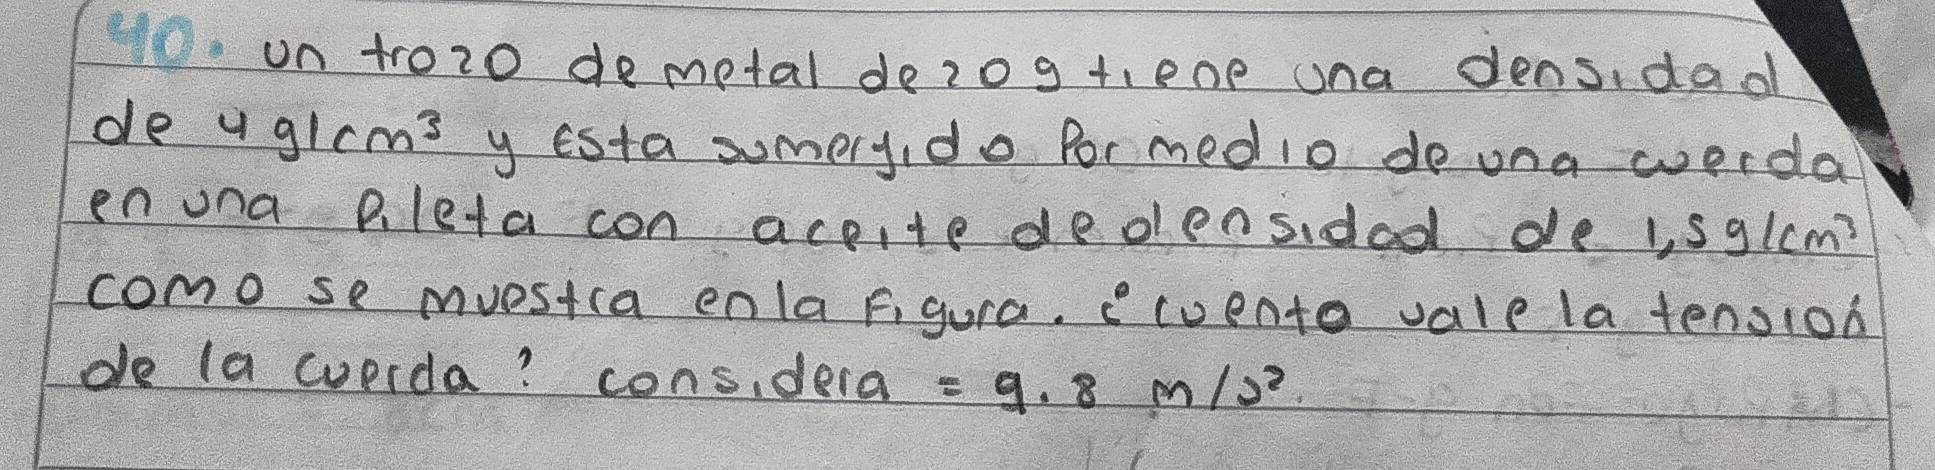 40. un trozo de metal de 20g tiene una densidad
de 4 g/cm³ y Esta sumergido Por medio de una cuerda
en una Pileta con aceite de densidad de 1,5 g/cm³
como se muestra en la Figura. ¿Cuento vale la tensión
de la cuerda? considera = 9.8 m/s².